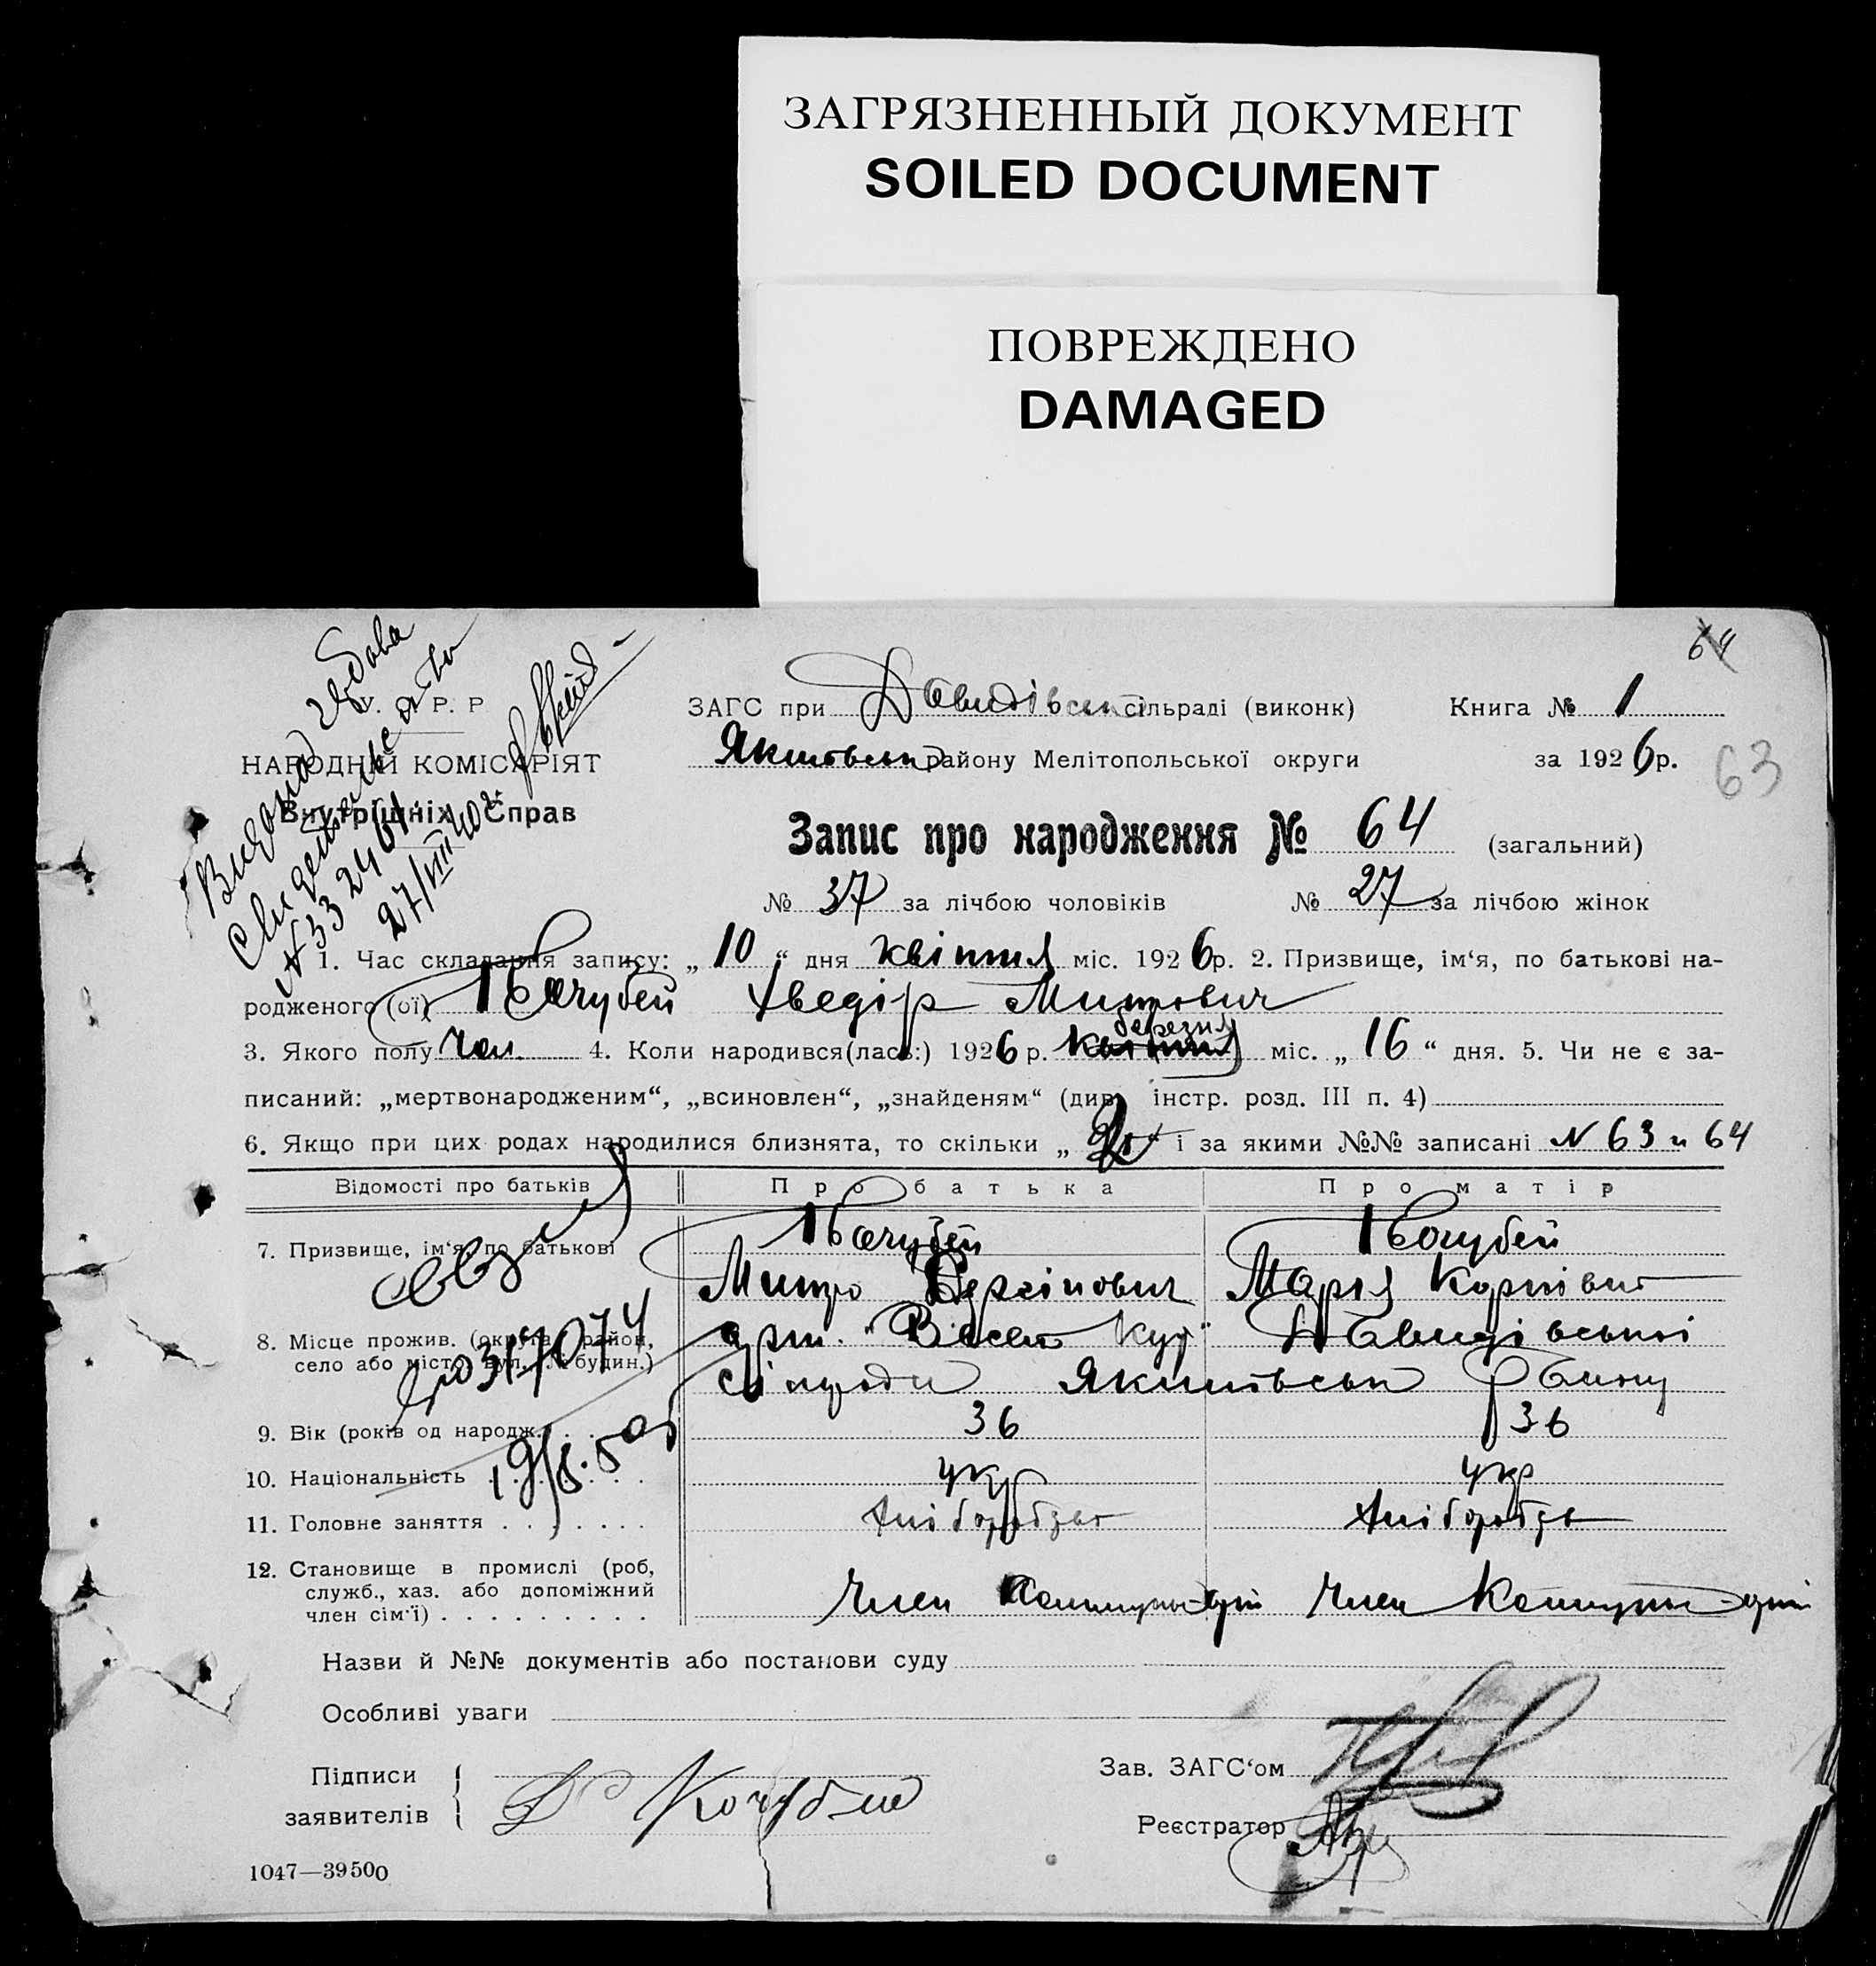 ЗАГРЯЗНЕННЫЙ ДОКУМЕНТ
SOILED DOCUMENT
ПОВРЕЖДЕНО
DAMAGED
64
У. С. Р. Р
НАРОДНІЙ КОМІСАРІЯТ
Внутрішніх Справ
Видана
свидетельство
№ 332461
27/VII 40 г.
ЗАГС при Давидівській сільраді (виконк) Книга № 1
Якимівськ району Мелітопольської округи за 1926 р.
63
Запис про народження № 64 (загальний)
№ 37 за лічбою чоловіків № 27 за лічбою жінок
1. Час складання запису: „ 10 “ дня квітня міс. 1926 р. 2. Призвище, ім‘я, по батькові на-
родженого (ої) Кочубей Хведір Митрович
березня
3. Якого полу Чол. 4. Коли народився(лась:) 1926 р. квітня міс. „ 16 “ дня. 5. Чи не є за-
писаний: „мертвонародженим“, „всиновлен“, „знайденям“ (див. інстр. розд. III п. 4)
6. Якщо при цих родах народилися близнята, то скільки „ “ і за якими №№ записані N 63 и 64
Відомості про батьків Про батька Про матір
7. Призвище, ім‘я, по батькові Кочубей Кочубей
Митро Мария
8. Місце прожив. (округа, район, арт. Давидівської
село або місто, вул. № будин.) сілради Якимівськ Району
9. Вік (років од народж. 36 36
10. Національність укр укр
11. Головне заняття Хліборобство Хлібороб
12. Становище в промислі (роб, служб., хаз. або допоміжний член сім‘ї) Член Член
Назви й №№ документів або постанови суду
Особливі уваги
Підписи заявителів Кочубей
Зав. ЗАГС‘ом
Реєстратор
1047—39500